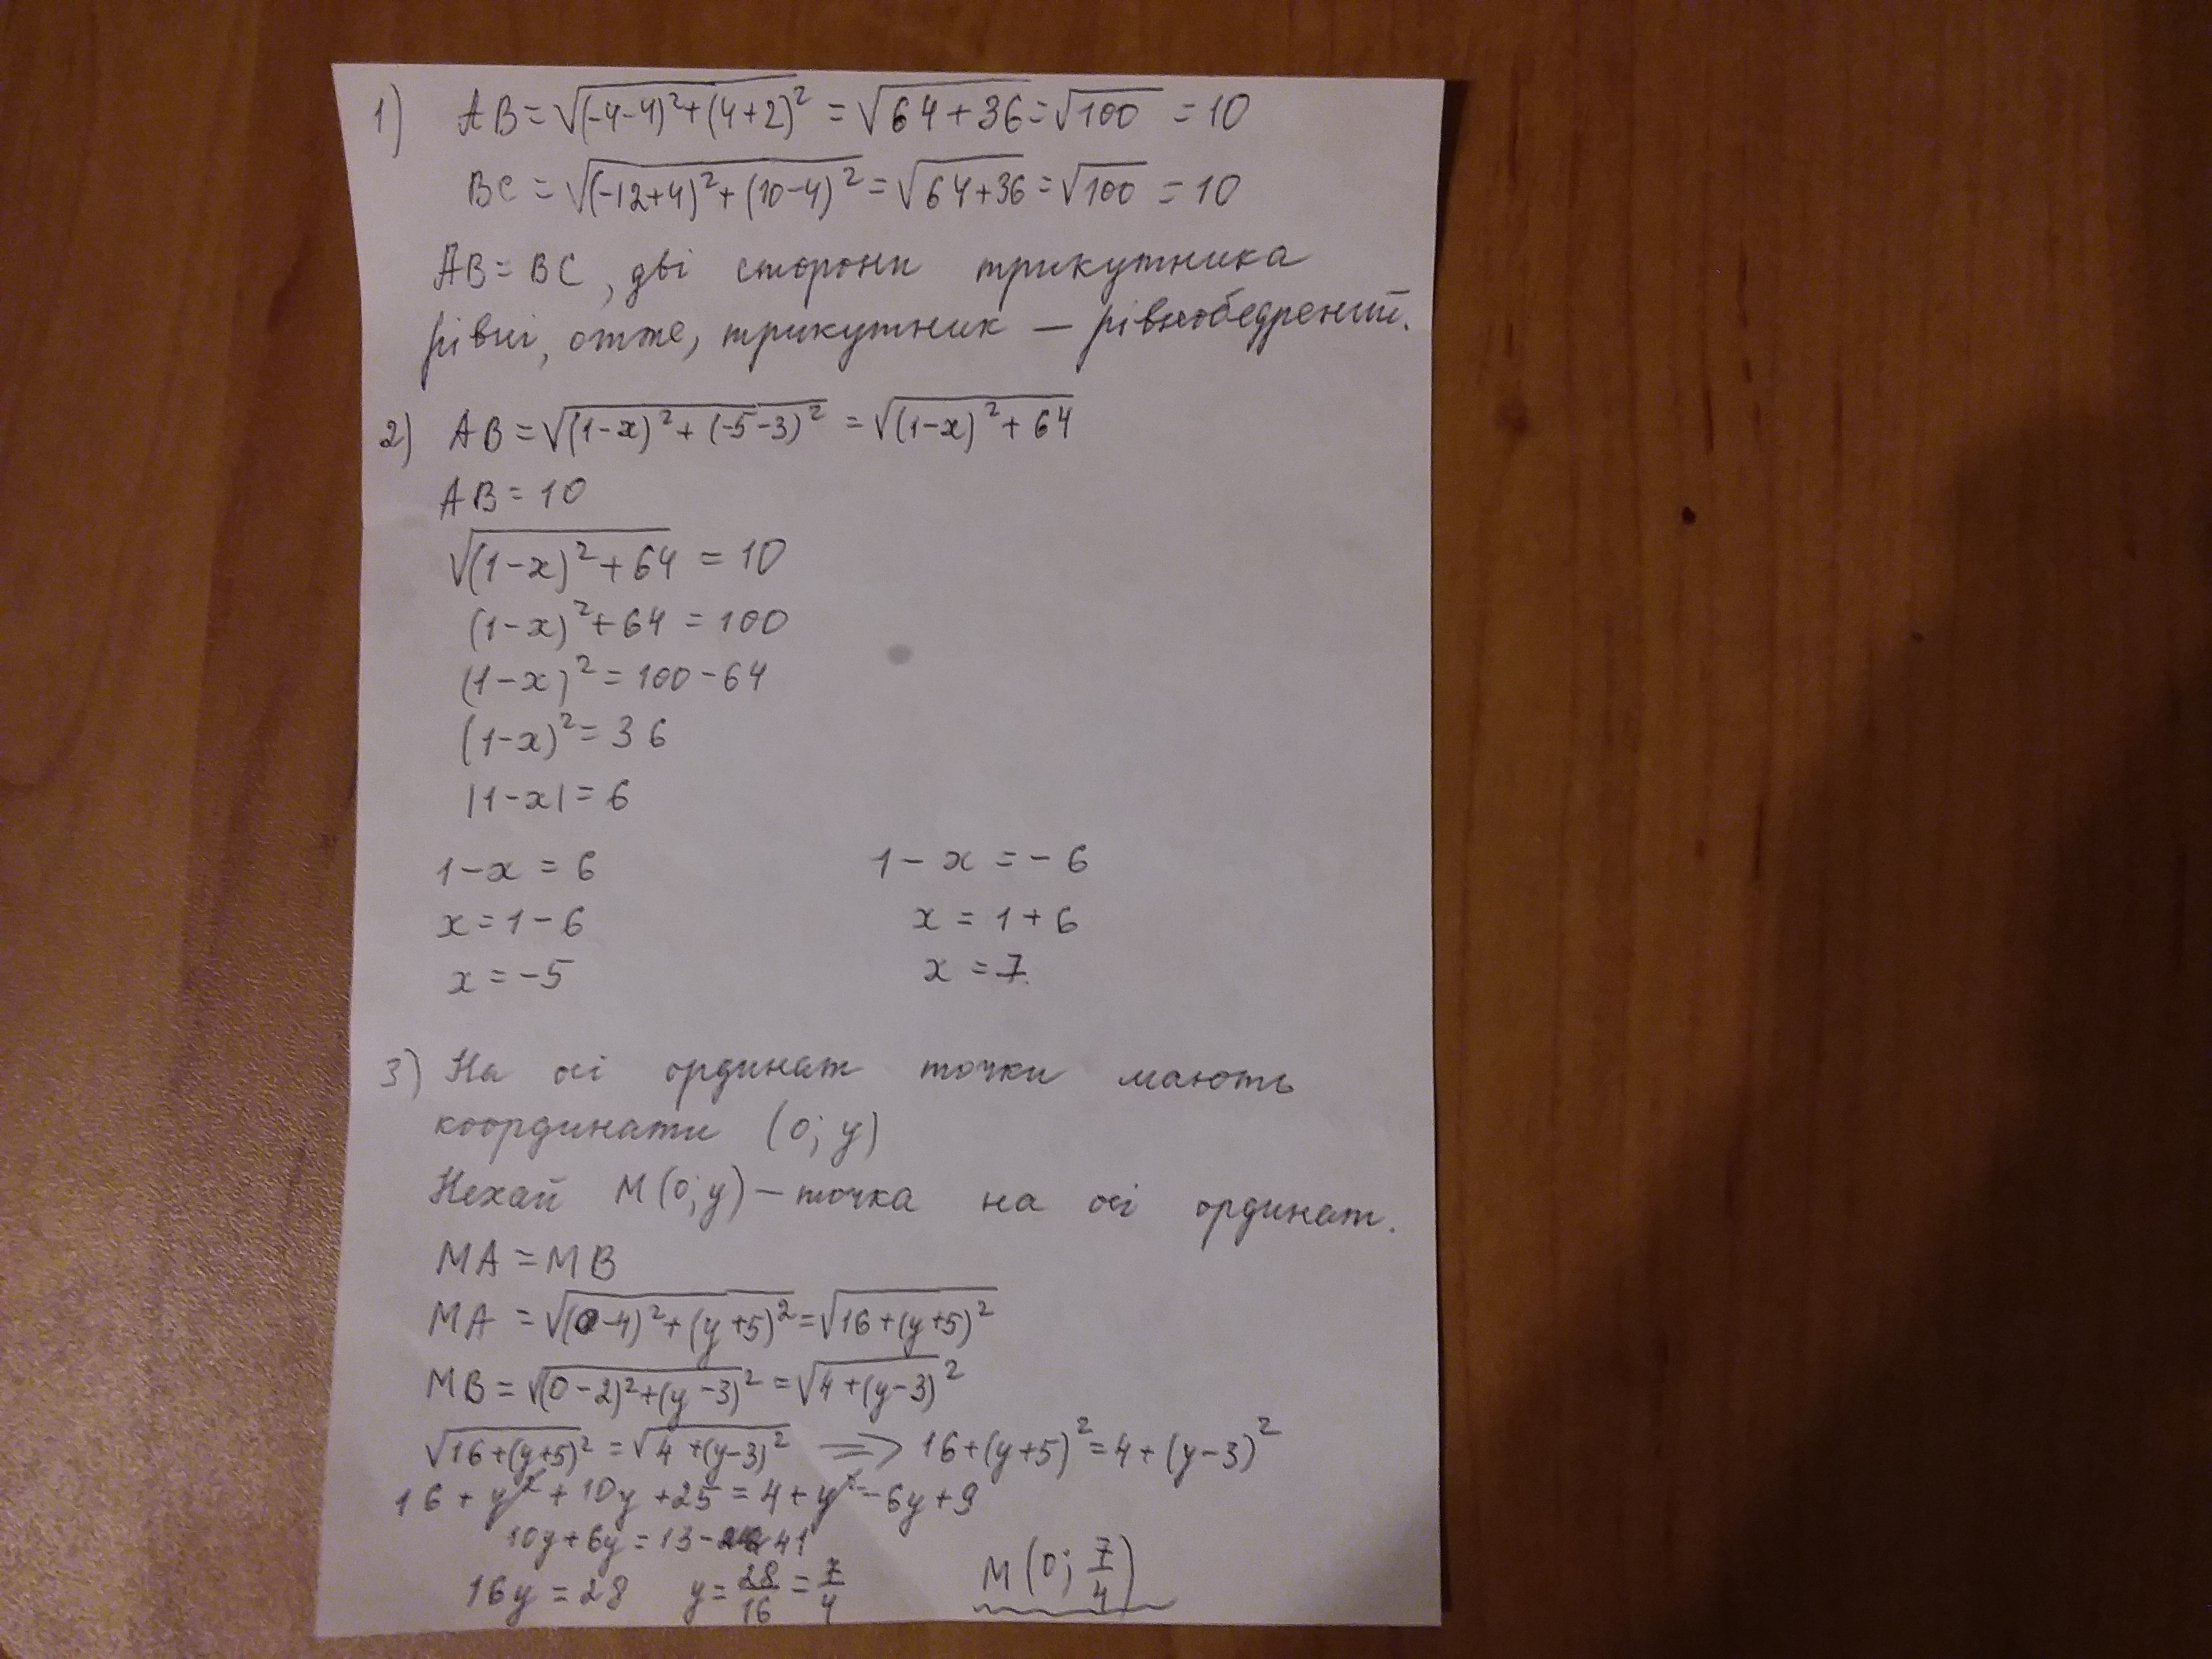 1) AB = √((-4-4)² + (4+2)²) = √(64+36) = √100 = 10
BC = √((-12+4)² + (10-4)²) = √(64+36) = √100 = 10
AB = BC, дві сторони трикутника
рівні, отже, трикутник — рівнобедрений.
2) AB = √((1-x)² + (-5-3)²) = √((1-x)² + 64)
AB = 10
√((1-x)² + 64) = 10
(1-x)² + 64 = 100
(1-x)² = 100 - 64
(1-x)² = 36
|1-x| = 6
1-x = 6 1-x = -6
x = 1-6 x = 1+6
x = -5 x = 7
3) На осі ординат точки мають
координати (0; y)
Нехай M(0; y) — точка на осі ординат.
MA = MB
MA = √((0-4)² + (y+5)²) = √(16+(y+5)²)
MB = √((0-2)² + (y-3)²) = √(4+(y-3)²)
√(16+(y+5)²) = √(4+(y-3)²) => 16+(y+5)² = 4+(y-3)²
16 + y² + 10y + 25 = 4 + y² - 6y + 9
10y + 6y = 13 - 41
16y = 28 y = 28/16 = 7/4 M(0; 7/4)